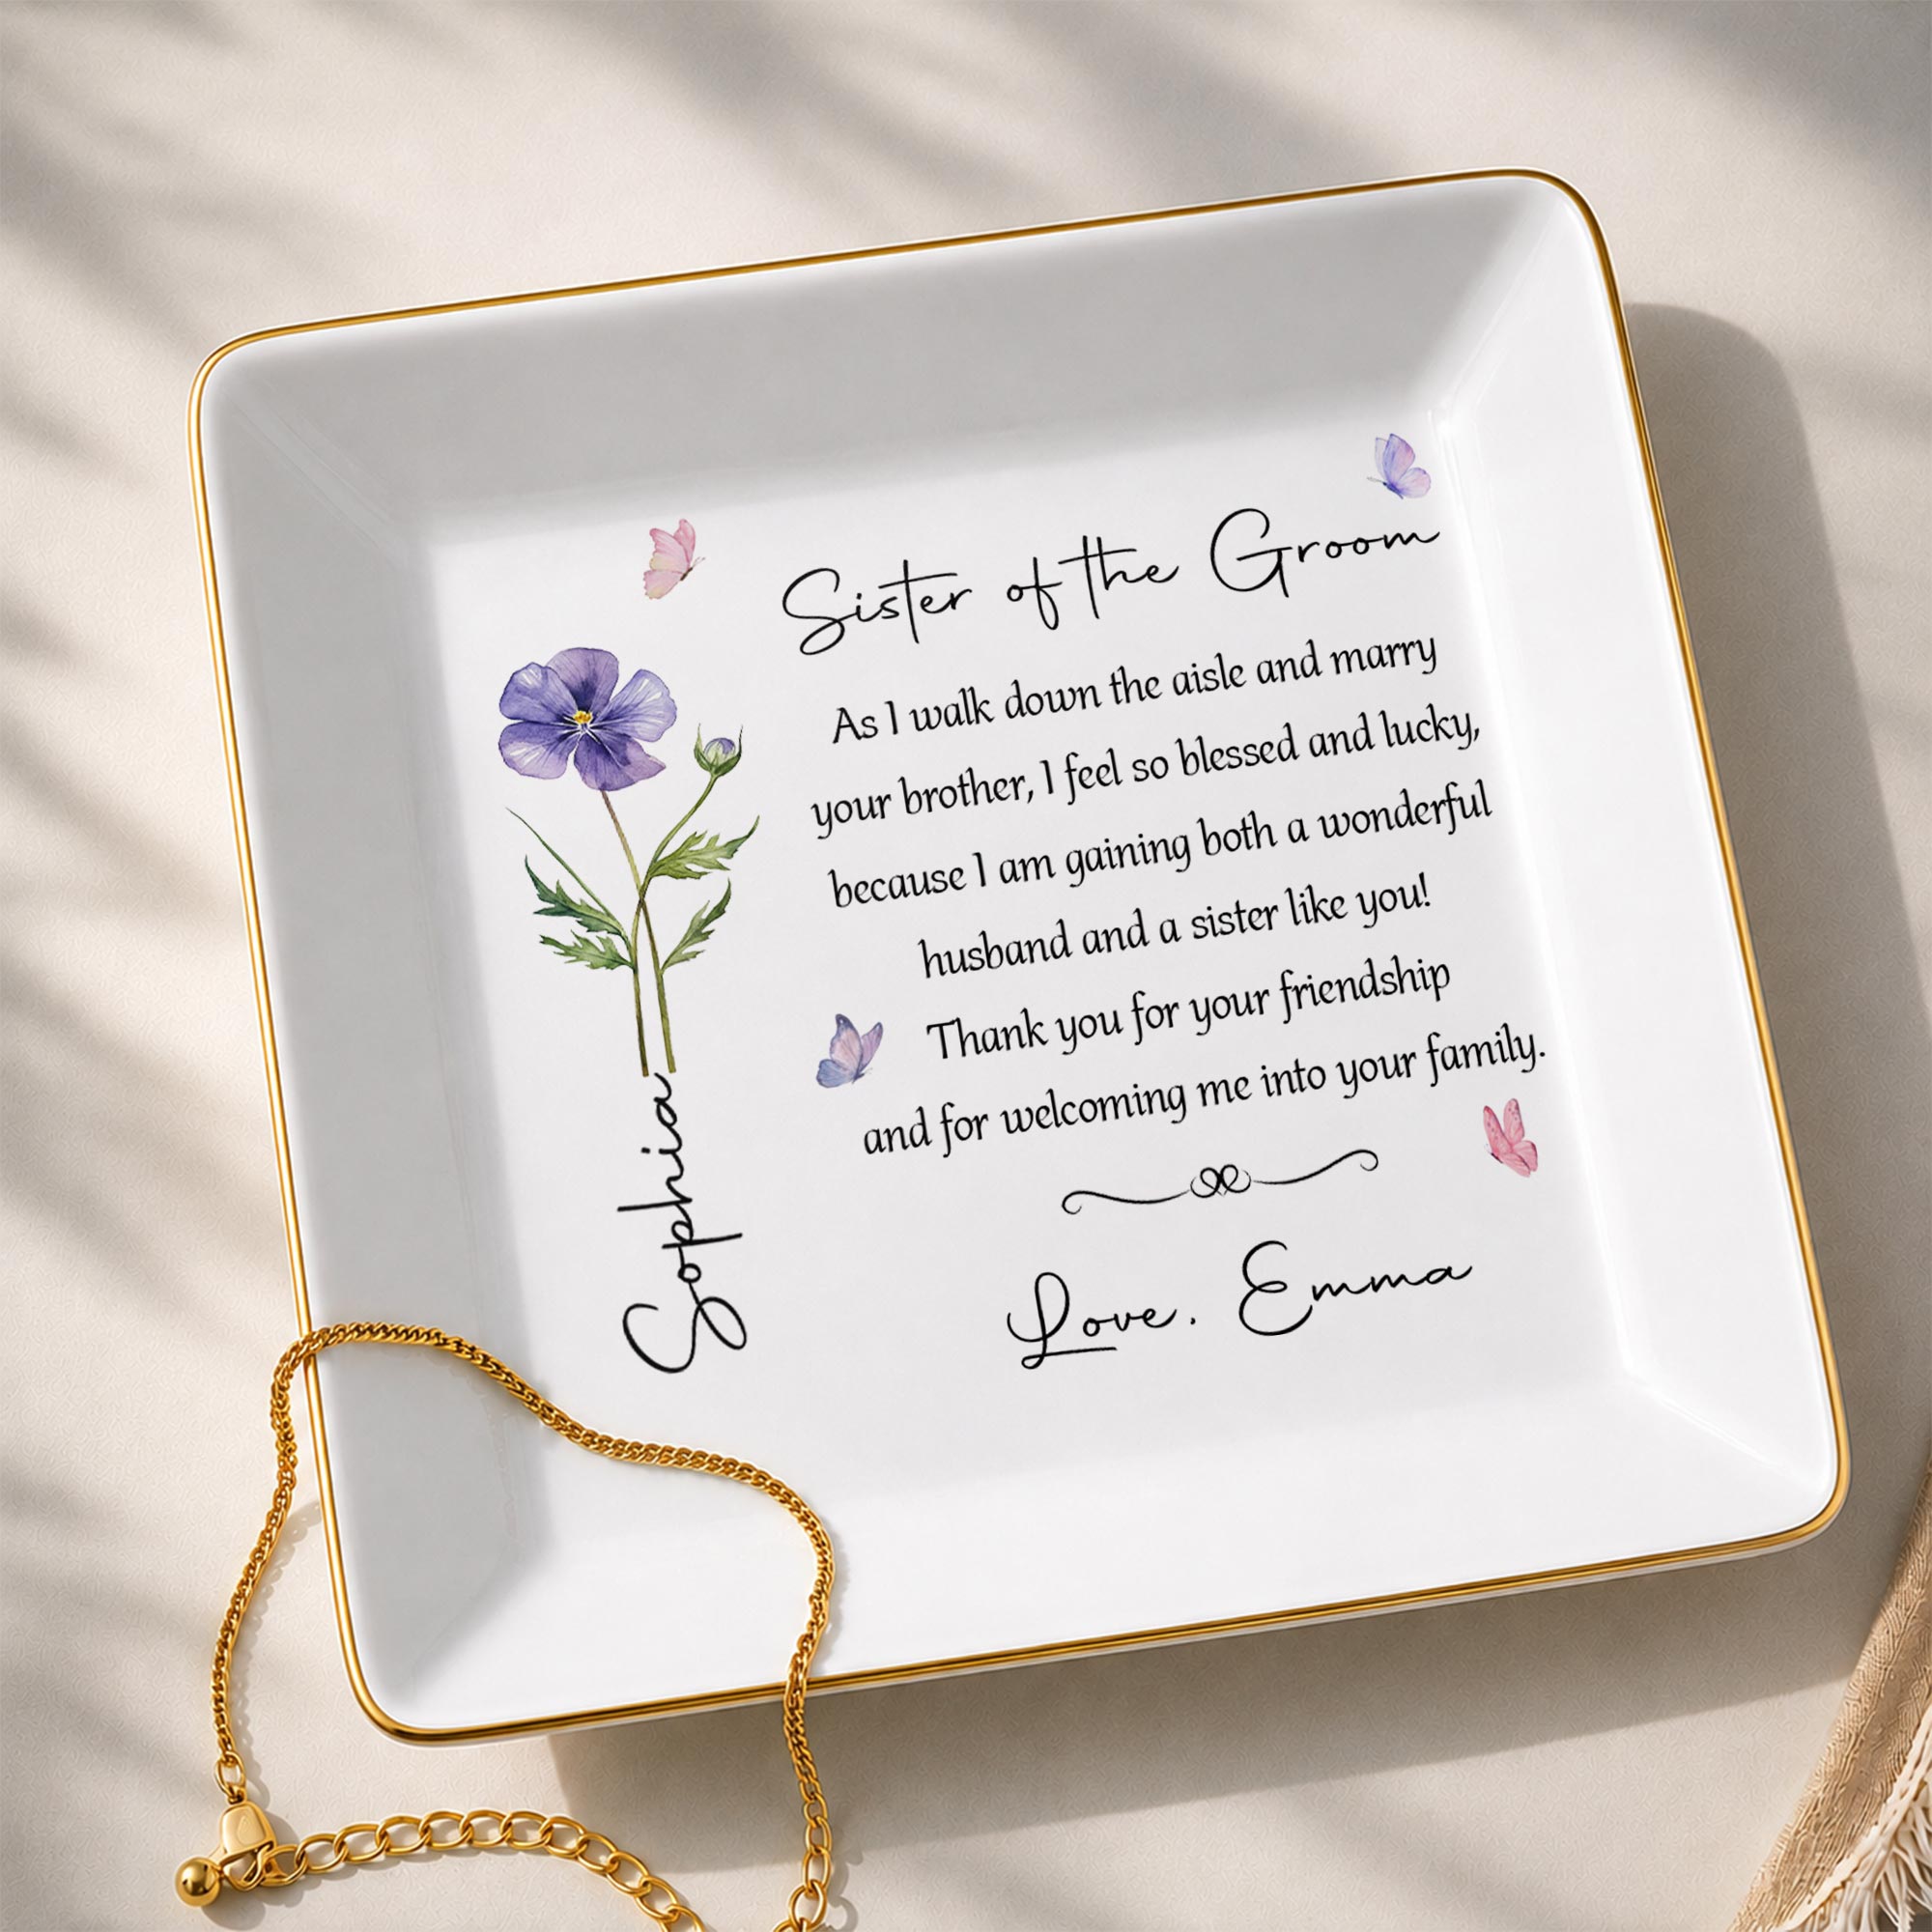 Sister of the Groom
As I walk down the aisle and marry
your brother, I feel so blessed and lucky,
because I am gaining both a wonderful
husband and a sister like you!
Thank you for your friendship
and for welcoming me into your family.
Love, Emma
Sophia